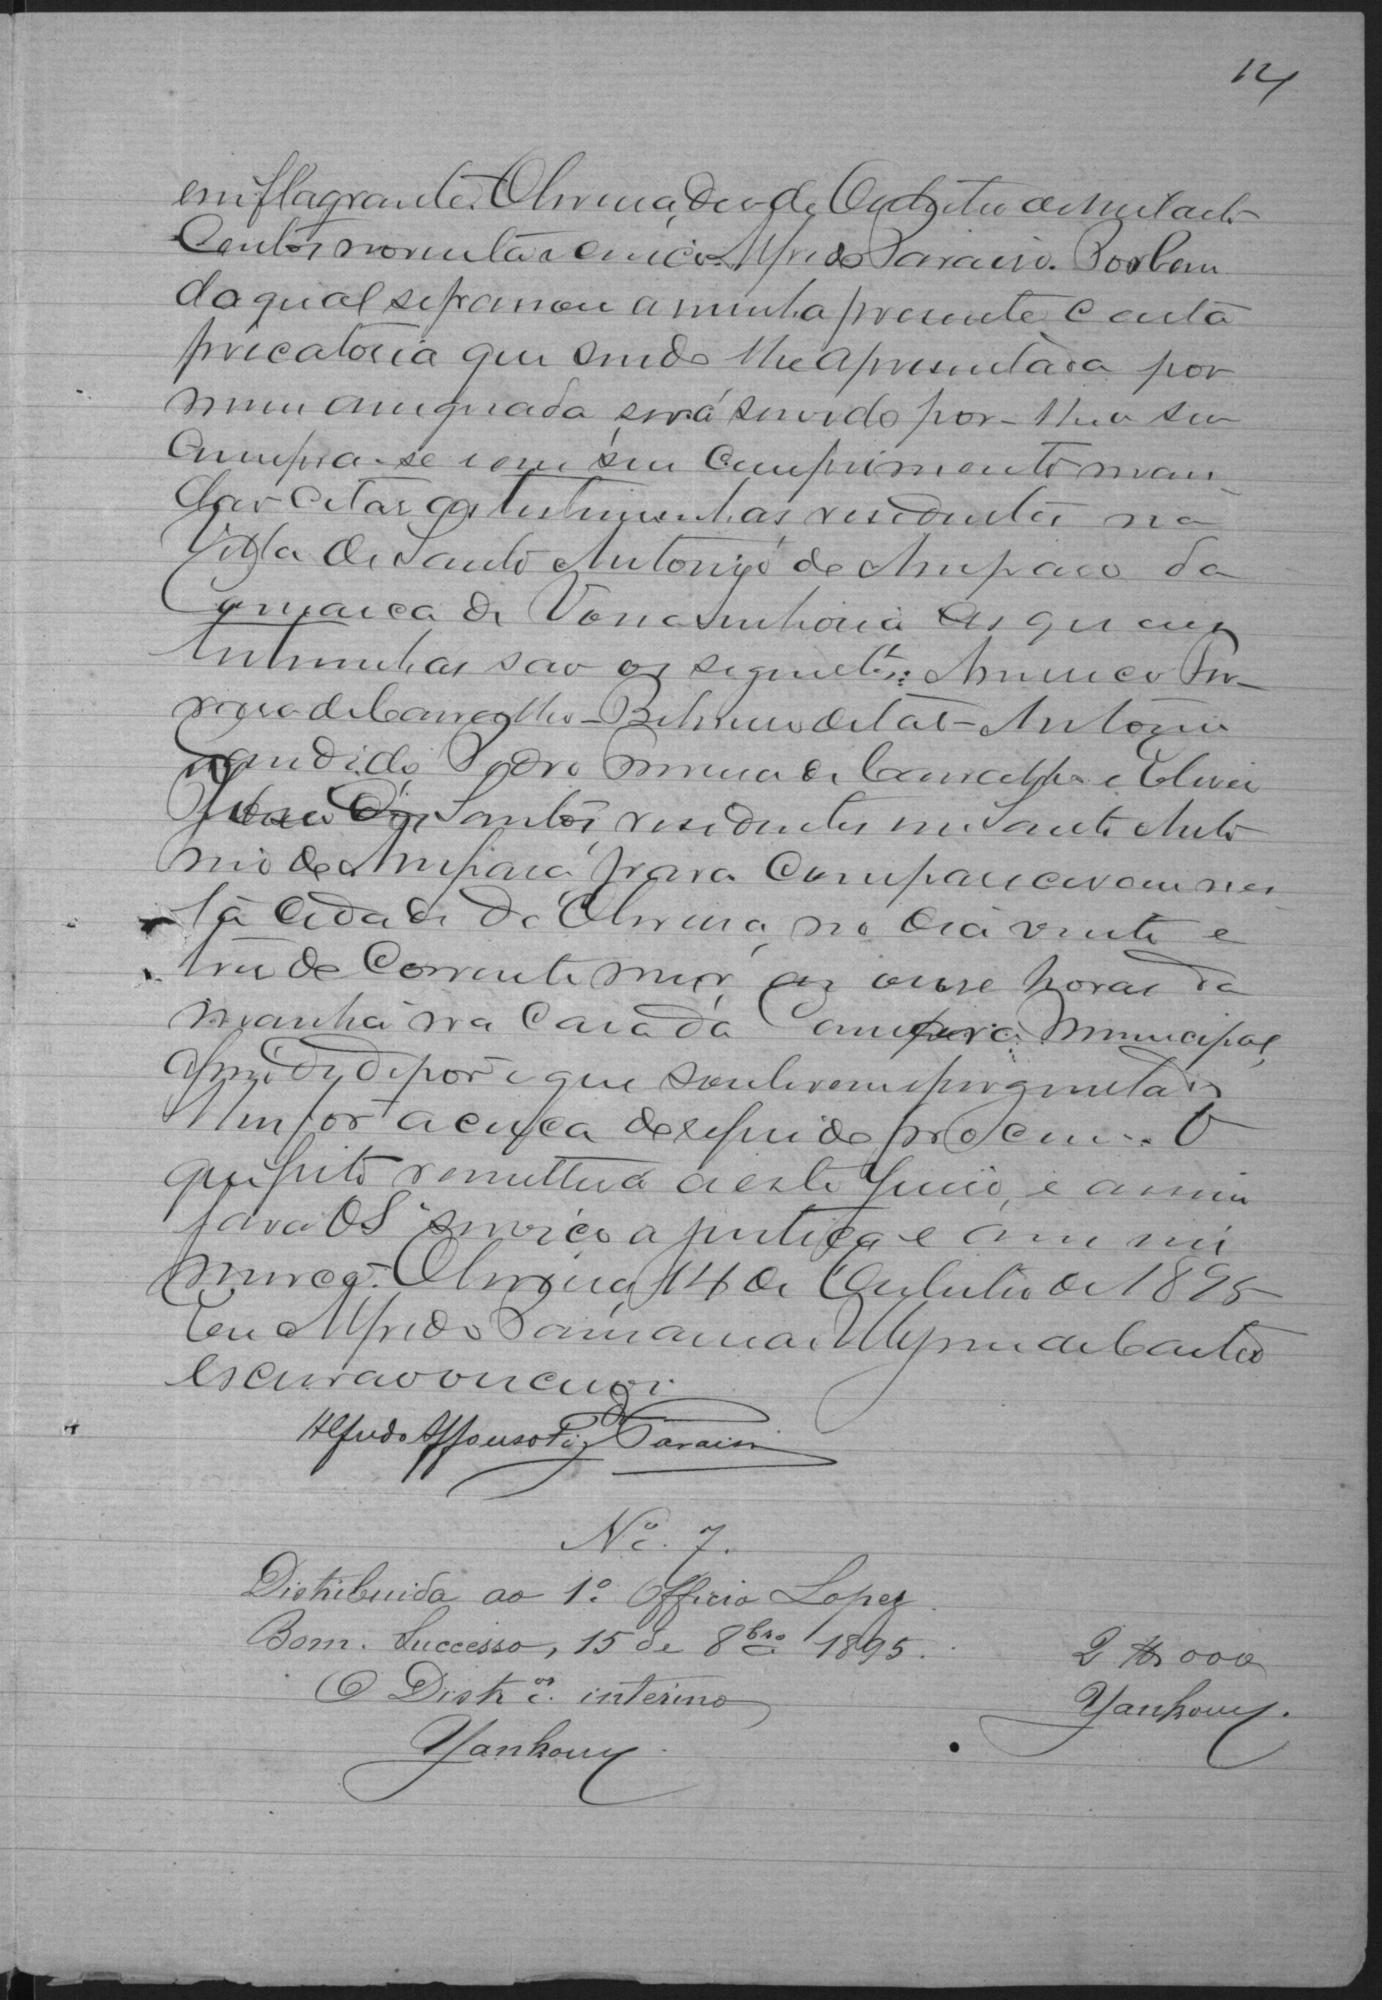 14
em flagrante. Oliveira, dez de Outubro de mil oito
Centos noventa e cinco. Alfredo Paraiso. Por bem
da qual se passou a minha presente Carta
precatoria que sendo lhe apresentada por
mim assignada será servido por-lhe o seu
Cumpra-se e em seu Cumprimento man-
dar citar as testimunhas residentes na
Villa de Santo Antonio do Amparo da
Comarca de Vossa senhoria as quaes
testimunhas são os seguintes: Americo Fer-
reira de Carvalho - Belmiro de tal - Antonio
Candido Pedro Ferreira de Carvalho e Eliseu
dos Santos, residentes em Santo Anto
nio do Amparo, para Comparecerem nes
ta cidade de Oliveira, no dia vinte e
tres do Corrente mez, as onse horas da
manhã na Casa da Camara Municipal,
afim de depor o que souberem e perguntado
lhes for acerca do referido processo. O
que feito remetterá a este Juizo, e assim
fará VS serviço a justiça e a mim
mercê. Oliveira, 14 de Outubro de 1895
Eu Alfredo de Castro
escrivão o escrevi.
Alfredo Affonso Paraiso
Nº. 7.
Distribuida ao 1º. Officio Lopez.
Bom. Successo, 15 de 8bro 1895.
2$000
O Distr.or interino
Yankouy.
Yankouy.